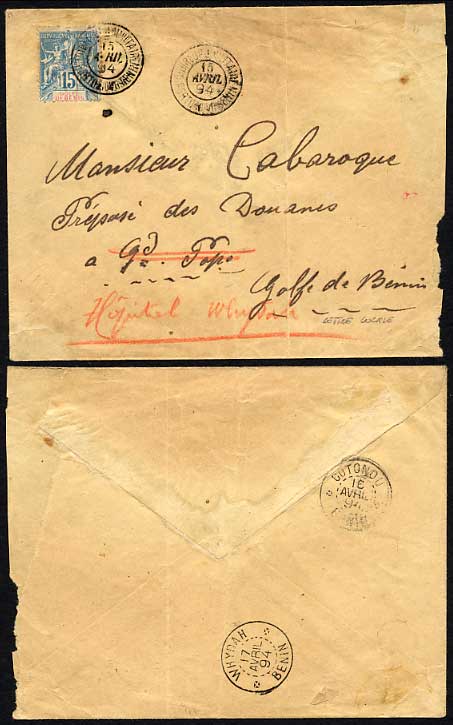 15
15
AVRIL
94
15
AVRIL
94
BENIN
Monsieur Cabaroque
Préposé des Douanes
a Gd. Popo
Golfe de Bénin
Hôpital Whydah
LETTRE LOCALE
COTONOU
16
AVRIL
94
WHYDAH
17
AVRIL
94
BENIN